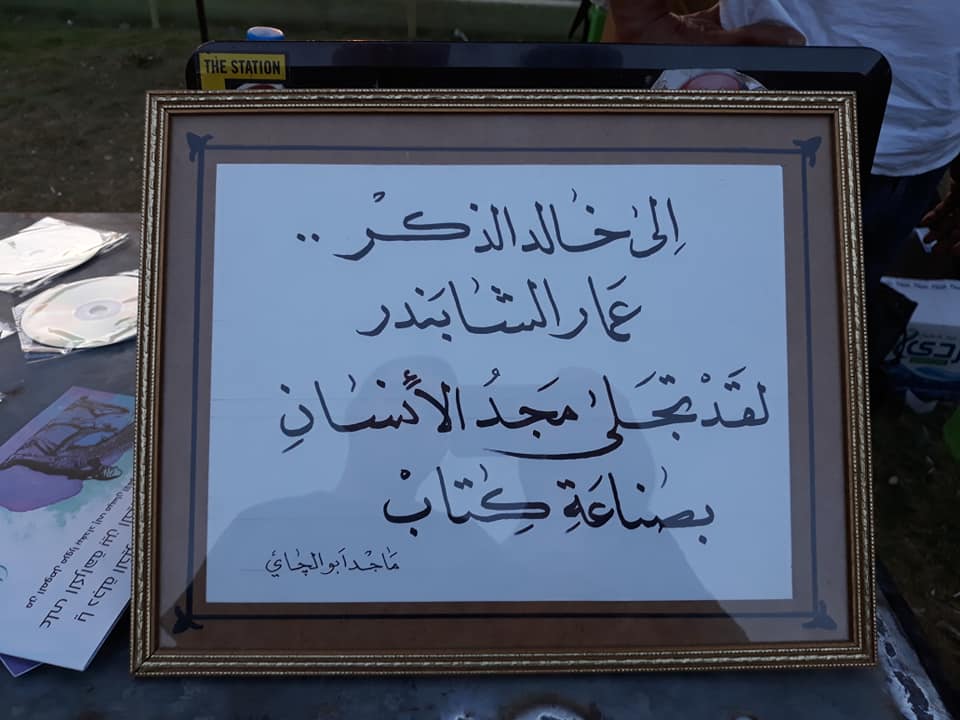 THE STATION
إلىٰ خالد الذكرْ ..
عمار الشابندر
لقَدْ تجَلىٰ مجَدُ الأنسانِ
بصناعَةِ كِتابْ
مَاجْد أبو الچاي